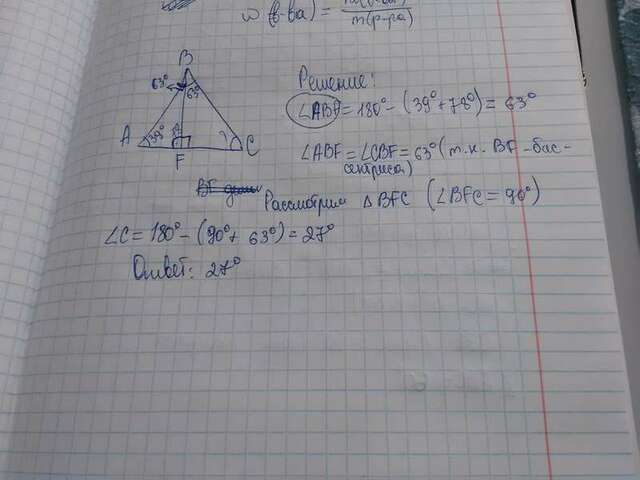 m(p-pa)
B
63°
63°
A
39°
78°
C
F
Решение:
∠ABF=180°-(39°+78°)=63°
∠ABF=∠CBF=63°(т.к. BF-бис-
сектриса)
Рассмотрим △BFC (∠BFC=90°)
∠C=180°-(90°+63°)=27°
Ответ: 27°